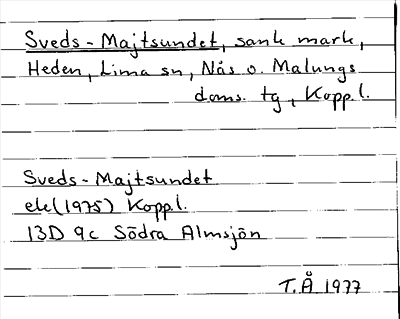 Sveds-Majtsundet, sank mark,
Heden, Lima sn, Nås o. Malungs
doms. tg, Koppl.
Sveds-Majtsundet
ek(1975) Koppl.
13D 9c Södra Almsjön
T.Å 1977